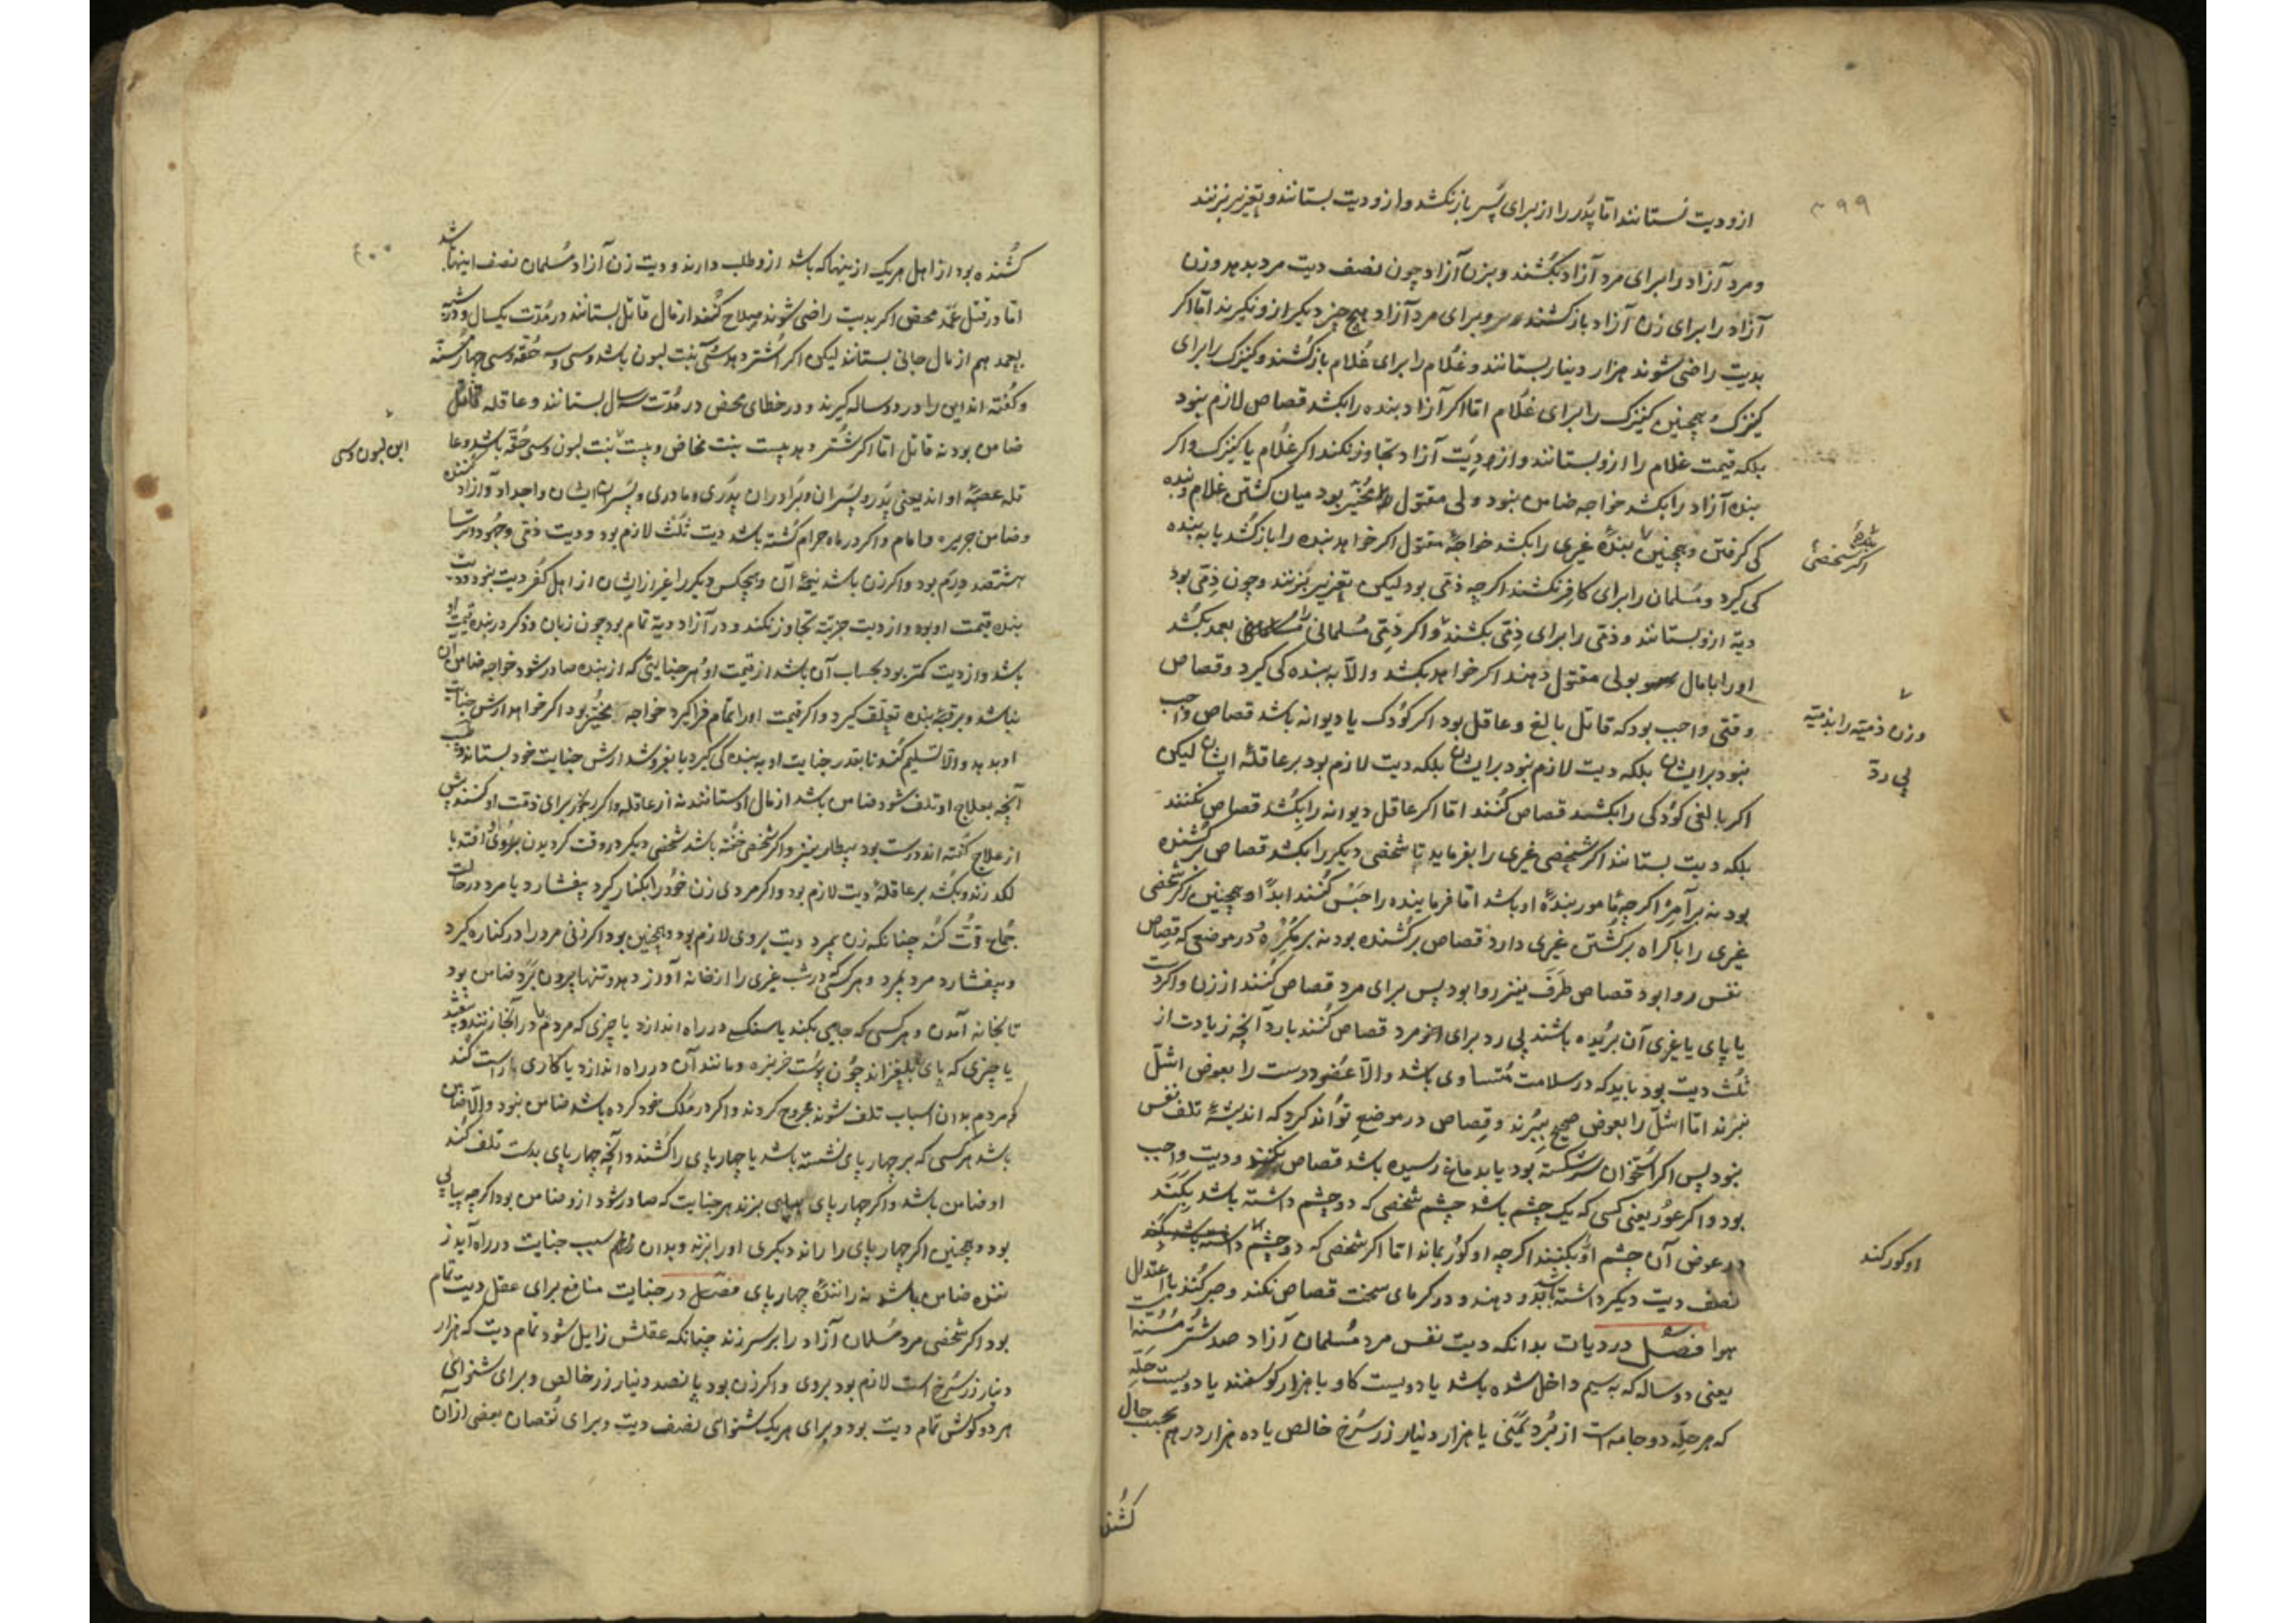 ٣٩٩
ازو دیت نستانند اما پدر را از برای پسر باز نکشد و ازو دیت بستانند و تعزیر بزنند
و مرد آزاد را برای مرد آزاد بکشند و بزن آزاد چون نصف دیت مرد بدهد و زن
آزاد را برای زن آزاد باز کشند و برای مرد آزاد هیچ چیز دیگر ازو نگیرند اما اگر
بدیت راضی شوند هزار دینار بستانند و غلام را برای غلام باز کشند و کنیزک را برای
کنیزک و همچنین کنیزک را برای غلام اما اگر آزاد بنده را بکشد قصاص لازم نبود
بلکه قیمت غلام را ازو بستانند و از دیت آزاد تجاوز نکند اگر غلام یا کنیزک و اگر
بنده آزاد را بکشد خواجه ضامن نبود ولی مقتول مخیر بود میان کشتن غلام و ببنده
کی گرفتن و همچنین بندهٔ غیری را بکشد خواجهٔ مقتول اگر خواهد بنده را باز کشد یا به بنده
اگر شخصی بنده
کی گیرد و مسلمان را برای کافر نکشند اگر چه ذمی بود لیکن تعزیر بزنند و چون ذمی بود
دیة ازو بستانند و ذمی را برای ذمی بکشند و اگر ذمی مسلمانی را بعمد بکشد
او را با مال بولی مقتول دهند اگر خواهد بکشد و الا به بنده کی گیرد و قصاص
وقتی واجب بود که قاتل بالغ و عاقل بود اگر کودک یا دیوانه باشد قصاص واجب
وزن ذمیه را بذمیه
نبود بر ایشان بلکه دیت لازم نبود بر ایشان بلکه دیت لازم بود بر عاقلهٔ ایشان لیکن
بی ردّ
اگر بالغی کودکی را بکشد قصاص کنند اما اگر عاقل دیوانه را بکشد قصاص نکنند
بلکه دیت بستانند اگر شخصی غیری را بفرماید تا شخصی دیگر را بکشد قصاص بر کشنده
بود نه بر آمر اگر چه مامور بندهٔ او باشد اما فرماینده را حبس کنند ابدا و همچنین اگر شخصی
غیری را باکراه بر کشتن غیری دارد قصاص بر کشنده بود نه بر مکره و در موضعی که قصاص
نفس روا بود قصاص طرف نیز روا بود پس برای مرد قصاص کنند از زن و اگر دست
یا پای یا غیری آن بریده باشند بی رد برای مرد قصاص کنند با رد آنچه زیادت از
ثلث دیت بود باید که در سلامت متساوی باشد و الا عضو درست را بعوض اشلّ
نبرند اما اشلّ را بعوض صحیح ببرند و قصاص در موضع تواند کرد که اندیشهٔ تلف نفس
نبود پس اگر استخوان سر شکسته بود یا بدماغ رسیده باشد قصاص نکنند و دیت واجب
بود و اگر عور یعنی کسی که یک چشم باشد چشم شخصی که دو چشم داشته باشد بکند
در عوض آن چشم او بکنند اگر چه او کور بماند اما اگر شخصی که دو چشم داشته باشد
او کور کند
نصف دیت دیگر داشته باشد و دهند و در گرمای سخت قصاص نکند و صبر کنند باعتدال
هوا فصل در دیات بدانکه دیت نفس مرد مسلمان آزاد صد شتر مسنه است
یعنی دو ساله که به سیم داخل شده باشد یا دویست گاو یا هزار گوسفند یا دویست حله
که هر حله دو جامه است از برد یمنی یا هزار دینار زر سرخ خالص یا ده هزار درهم بحسب حال
کشند
٤٠٠
کشنده بود از اهل هر یک ازینها که باشد ازو طلب دارند و دیت زن آزاد مسلمان نصف اینها باشد
اما در قتل عمد محض اگر بدیت راضی شوند و صلاح کنند از مال قاتل بستانند در مدت یکسال و در شبیه
بعمد هم از مال جانی بستانند لیکن اگر اشتر دهد سی بنت لبون باشد و سی و سه حقه و سی چهار مسنه
و گفته اند این را در دو ساله گیرند و در خطای محض در مدت سه سال بستانند و عاقله
ضامن بود نه قاتل اما اگر شتر دهد بیست بنت مخاض و بیست بنت لبون و سی حقه باشد و عا
ابن لبون و سی
قله عصبهٔ او اند یعنی پدر و پسران و برادران پدری و مادری و پسران ایشان و اجداد و آزاد کننده
و ضامن جریره و امام و اگر در ماه حرام کشته باشد دیت ثلث لازم بود و دیت ذمی و جهود و ترسا
هشتصد درم بود و اگر زن باشد نیمهٔ آن و هیچکس دیگر را غیر از ایشان از اهل کفر دیت نبود و دیت
بنده قیمت او بود و از دیت حریة تجاوز نکند و در آزاد دیة تمام بود چون زبان و ذکر در بنده قیمت او
باشد و از دیت کمتر بود بحساب آن باشد از قیمت او هر جنایتی که از بنده صادر شود خواجه ضامن آن
نباشد و برقبهٔ بنده تعلق گیرد و اگر قیمت او را تمام فراگیرد خواجه مخیر بود اگر خواهد ارش جنایت
او بدهد و الا تسلیم کند تا بقدر جنایت او به بنده کی گیرد یا بفروشد ارش جنایت خود بستاند و طبیب
آنچه بعلاج او تلف شود ضامن باشد از مال او ستانند نه از عاقله و اگر برای ذمت او کنند پیش
از علاج گفته اند درست بود بیطار نیز و اگر شخصی خفته باشد شخصی دیگر در وقت گردیدن بر وی افتد یا
لکد زند و بکشد بر عاقلهٔ دیت لازم بود و اگر مردی زن خود را بکنار گیرد بیفشارد یا مرد در حالت
جماع قوت کند چنانکه زن بمیرد دیت بر وی لازم بود و همچنین بود اگر زنی مرد را در کنار گیرد
و بیفشارد مرد بمیرد و هر کسی که در شب غیری را از خانه آواز دهد و تنها بیرون برد ضامن بود
تا بخانه آمدن و هر کسی که جایی بکند یا سنگی در راه اندازد یا چیزی که مردم در آنجا زنند و بیفتند
یا چیزی که پای بلغزاند چون پوست خربزه و مانند آن در راه اندازد یا کاری راست کند
که مردم بدان اسباب تلف شوند مجروح گردند و اگر در ملک خود کرده باشد ضامن نبود و الا ضامن
باشد هر کسی که بر چهارپای نشسته باشد یا چهارپای را کشند و آنچه چهارپای بدست تلف کند
او ضامن باشد و اگر چهارپای بزند هر جنایت که صادر شود ازو ضامن بود اگر چه بپای
بود و همچنین اگر چهارپای را راند دیگری او را بزند و بدان سبب جنایت در راه آید ز
ننده ضامن باشد نه رانندهٔ چهارپای فصل در جنایت منافع برای عقل دیت تمام
بود اگر شخصی مرد مسلمان آزاد را بر سر زند چنانکه عقلش زایل شود تمام دیت که هزار
دینار زر سرخ است لازم بود بر وی و اگر زن بود پانصد دینار زر خالص و برای شنوائی
هر دو گوش تمام دیت بود و برای هر یک شنوائی نصف دیت و برای نقصان بعضی از آن